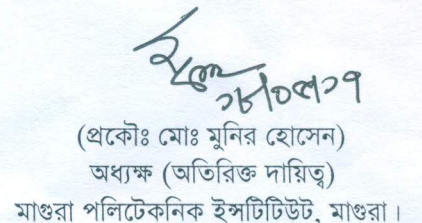 (প্রকৌঃ মোঃ মুনির হোসেন)
অধ্যক্ষ (অতিরিক্ত দায়িত্ব)
মাগুরা পলিটেকনিক ইন্সটিটিউট, মাগুরা।